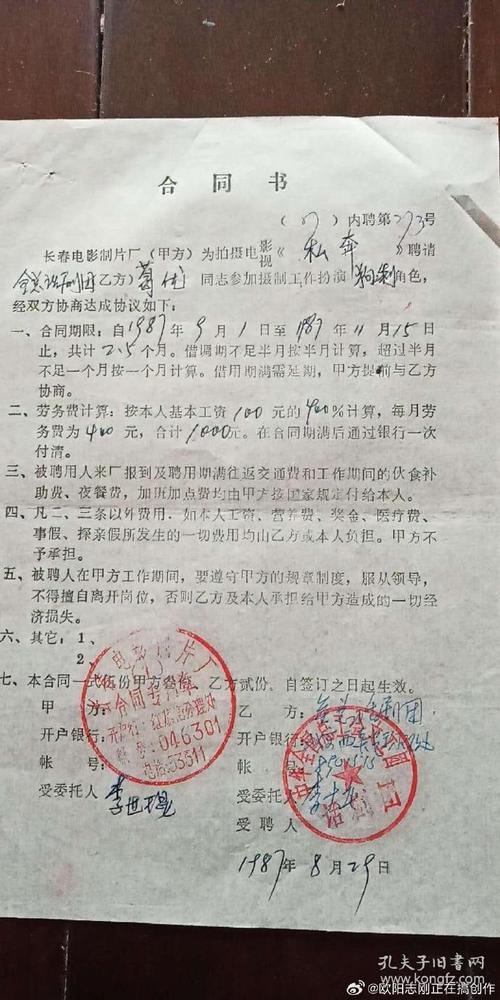 合同书
(87)内聘第273号
长春电影制片厂(甲方)为拍摄电影视《私奔》聘请
全总话剧团(乙方)葛优同志参加摄制工作扮演角色,
经双方协商达成协议如下:
一、合同期限:自1987年9月1日至1987年11月15日
止,共计2.5个月。借调期不足半月按半月计算,超过半月
不足一个月按一个月计算。借用期满需延期,甲方提前与乙方
协商。
二、劳务费计算:按本人基本工资100元的400%计算,每月劳
务费为400元,合计1000元。在合同期满后通过银行一次
付清。
三、被聘用人来厂报到及聘用期满往返交通费和工作期间的伙食补
助费、夜餐费,加班加点费均由甲方按国家规定付给本人。
四、凡二、三条以外费用,如本人工资、营养费、奖金、医疗费、
事假、探亲假所发生的一切费用均由乙方或本人负担。甲方不
予承担。
五、被聘人在甲方工作期间,要遵守甲方的规章制度,服从领导,
不得擅自离开岗位,否则乙方及本人承担给甲方造成的一切经
济损失。
六、其它:1、
2、
七、本合同一式伍份甲方叁份,乙方贰份,自签订之日起生效。
甲方:
乙方:全总话剧团
开户银行:
开户银行:
帐号:
帐号:
受委托人
受委托人
受聘人
1987年8月29日
电影制片厂
合同专用章
046301
电话53311
话剧团
孔夫子旧书网
www.kongfz.com
@欧阳志刚正在搞创作